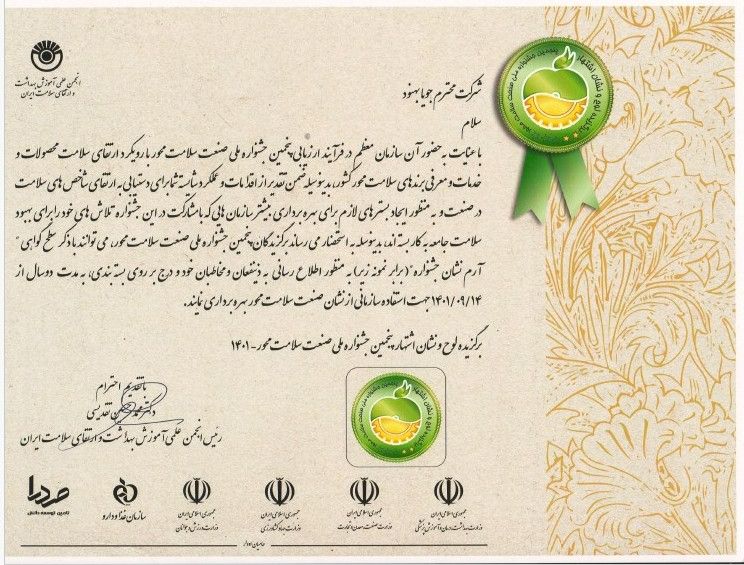 انجمن علمی آموزش بهداشت
و ارتقای سلامت ایران
شرکت محترم جویا بهنود
سلام
با عنایت به حضور آن سازمان معظم در فرآیند ارزیابی پنجمین جشنواره ملی صنعت سلامت محور با رویکرد ارتقای سلامت محصولات و
خدمات و معرفی برندهای سلامت محور کشور، بدینوسیله ضمن تقدیر از اقدامات و عملکرد شایسته شما برای دستیابی به ارتقای شاخص های سلامت
در صنعت و به منظور ایجاد بسترهای لازم برای بهره برداری بیشتر سازمان هایی که با مشارکت در این جشنواره تلاش های خود را برای بهبود
سلامت جامعه به کار بسته اند، بدینوسیله به استحضار می رساند برگزیدگان پنجمین جشنواره ملی صنعت سلامت محور، می توانند با ذکر سطح گواهی "
آرم نشان جشنواره "(برابر نمونه زیر) به منظور اطلاع رسانی به ذینفعان و مخاطبان خود و درج بر روی بسته بندی، به مدت دو سال از
۱۴۰۱/۰۹/۱۴ جهت استفاده سازمانی از نشان صنعت سلامت محور بهره برداری نمایند.
برگزیده لوح و نشان اشتهار پنجمین جشنواره ملی صنعت سلامت محور - ۱۴۰۱
با تقدیم احترام
تقدیسی
رئیس انجمن علمی آموزش بهداشت و ارتقای سلامت ایران
جمهوری اسلامی ایران
وزارت بهداشت، درمان و آموزش پزشکی
جمهوری اسلامی ایران
وزارت صنعت، معدن و تجارت
جمهوری اسلامی ایران
وزارت جهاد کشاورزی
جمهوری اسلامی ایران
وزارت ورزش و جوانان
سازمان غذا و دارو
تامین توسعه دانش